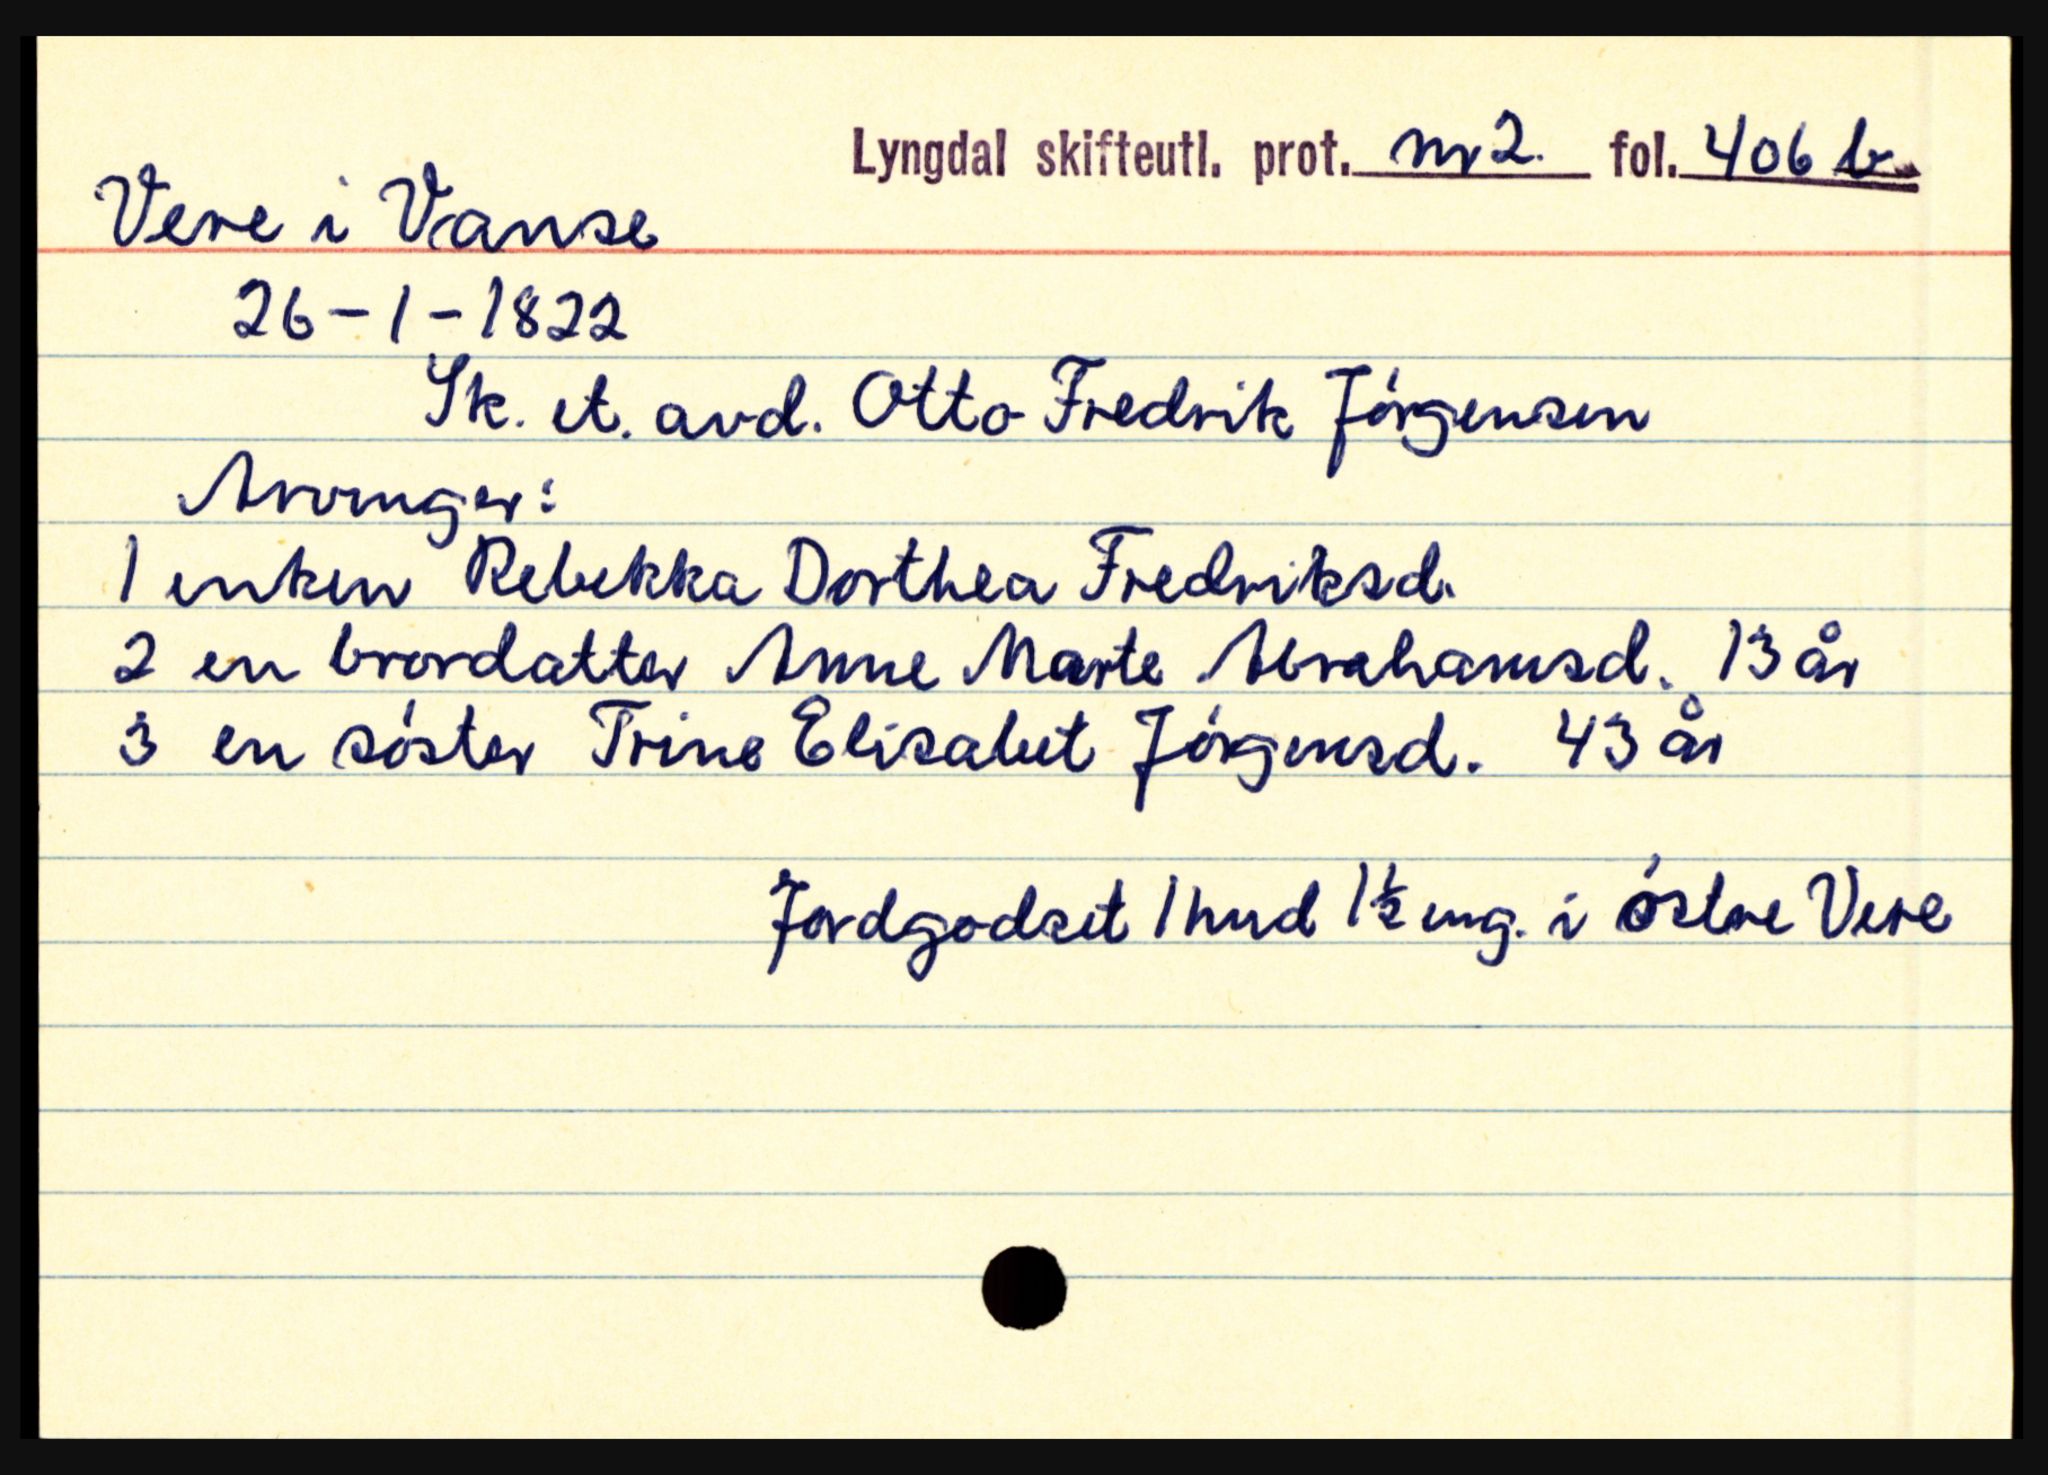 Lyngdal skifteutl. prot. nr 2. fol. 406 b.
Vere i Vanse
26-1-1822
Sk. et. avd. Otto Fredrik Jórgensen
Arvinger:
1 enken Rebekka Dorthea Fredriksd.
2 en brordatter Anne Marte Abrahamsd. 13 år
3 en sóster Trine Elisabet Jórgensd. 43 år
Jordgodset 1 hud 1½ eng. i óstre Vere